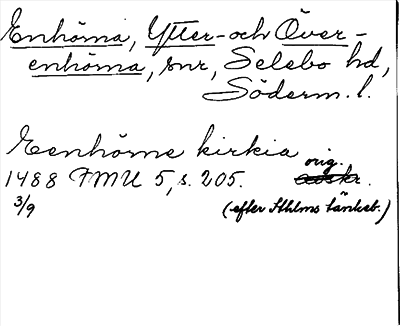 Enhörna, Ytter- och Över-
enhörna, snr, Selebo hd,
Söderm. l.
Eenhörne kirkia
orig.
1488 FMU 5, s. 205. avskr.
3/9 (efter Sthlms tänkeb.)